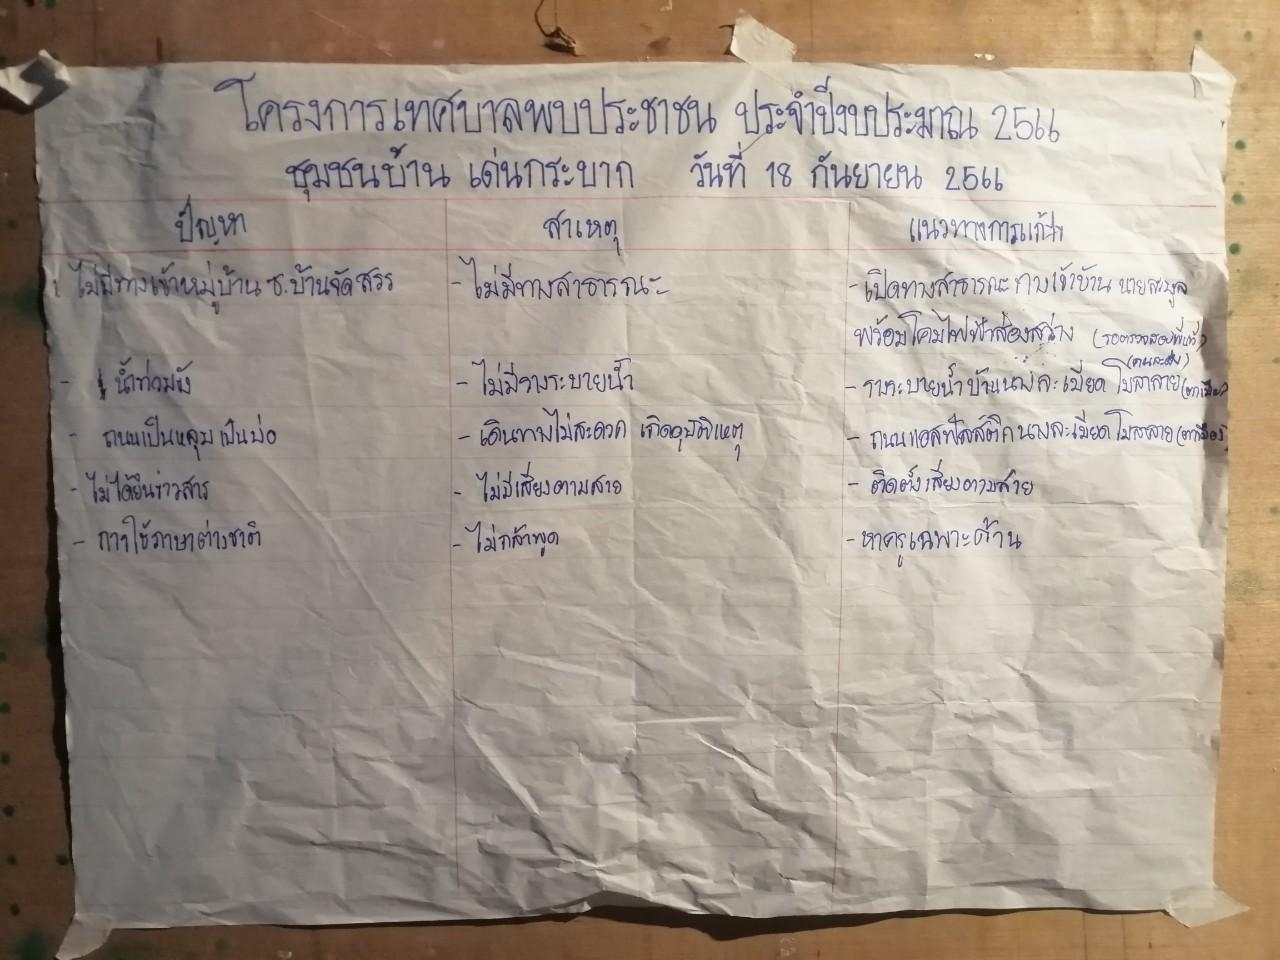 โครงการเทศบาลพบประชาชน ประจำปีงบประมาณ 2566
ชุมชนบ้าน เด่นกระบาก วันที่ 18 กันยายน 2566
ปัญหา สาเหตุ แนวทางการแก้ไข
ไม่มีทางเข้าหมู่บ้าน ซ.บ้านจัดสรร - ไม่มีทางสาธารณะ - เปิดทางสาธารณะทางเข้าบ้าน นายสมพูล
พร้อมโคมไฟฟ้าส่องสว่าง (รอตรวจสอบพื้นที่)
(คนละฝั่ง)
- น้ำท่วมขัง - ไม่มีรางระบายน้ำ - รางระบายน้ำ บ้านนางละเมียด โมลาลาย
- ถนนเป็นหลุมเป็นบ่อ - เดินทางไม่สะดวก เกิดอุบัติเหตุ - ถนนแอสฟัลส์ติค นางละเมียด โมลาลาย
- ไม่ได้ยินข่าวสาร - ไม่มีเสียงตามสาย - ติดตั้งเสียงตามสาย
- การใช้ภาษาต่างชาติ - ไม่กล้าพูด - หาครูเฉพาะด้าน